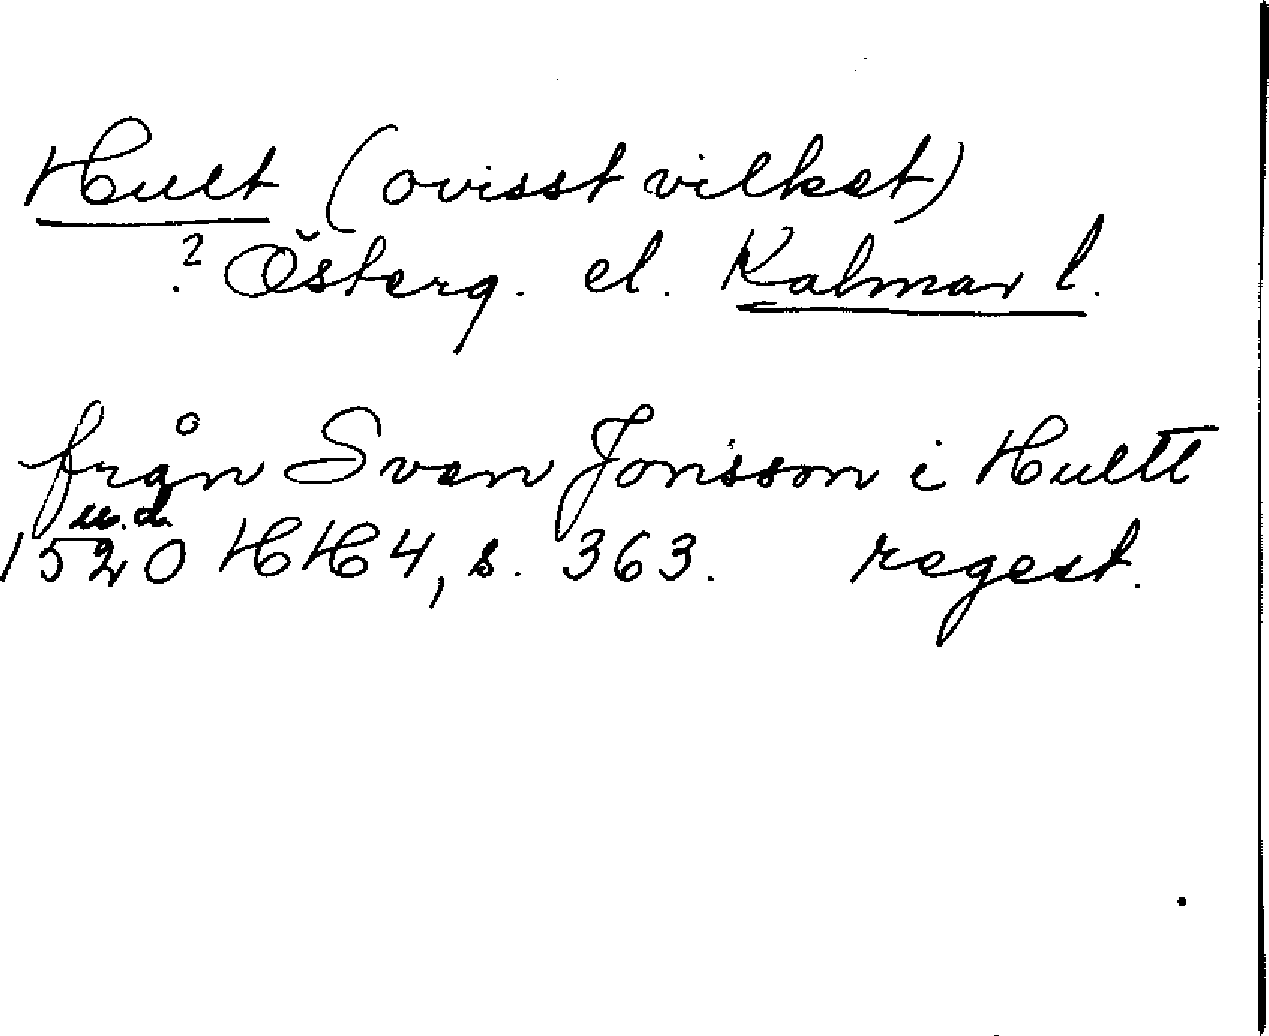 Hult (ovisst vilket)
? Österg. el. Kalmar l.
från Sven Jonsson i Hultt
u. d.
1520 HH 4, s. 363. regest.